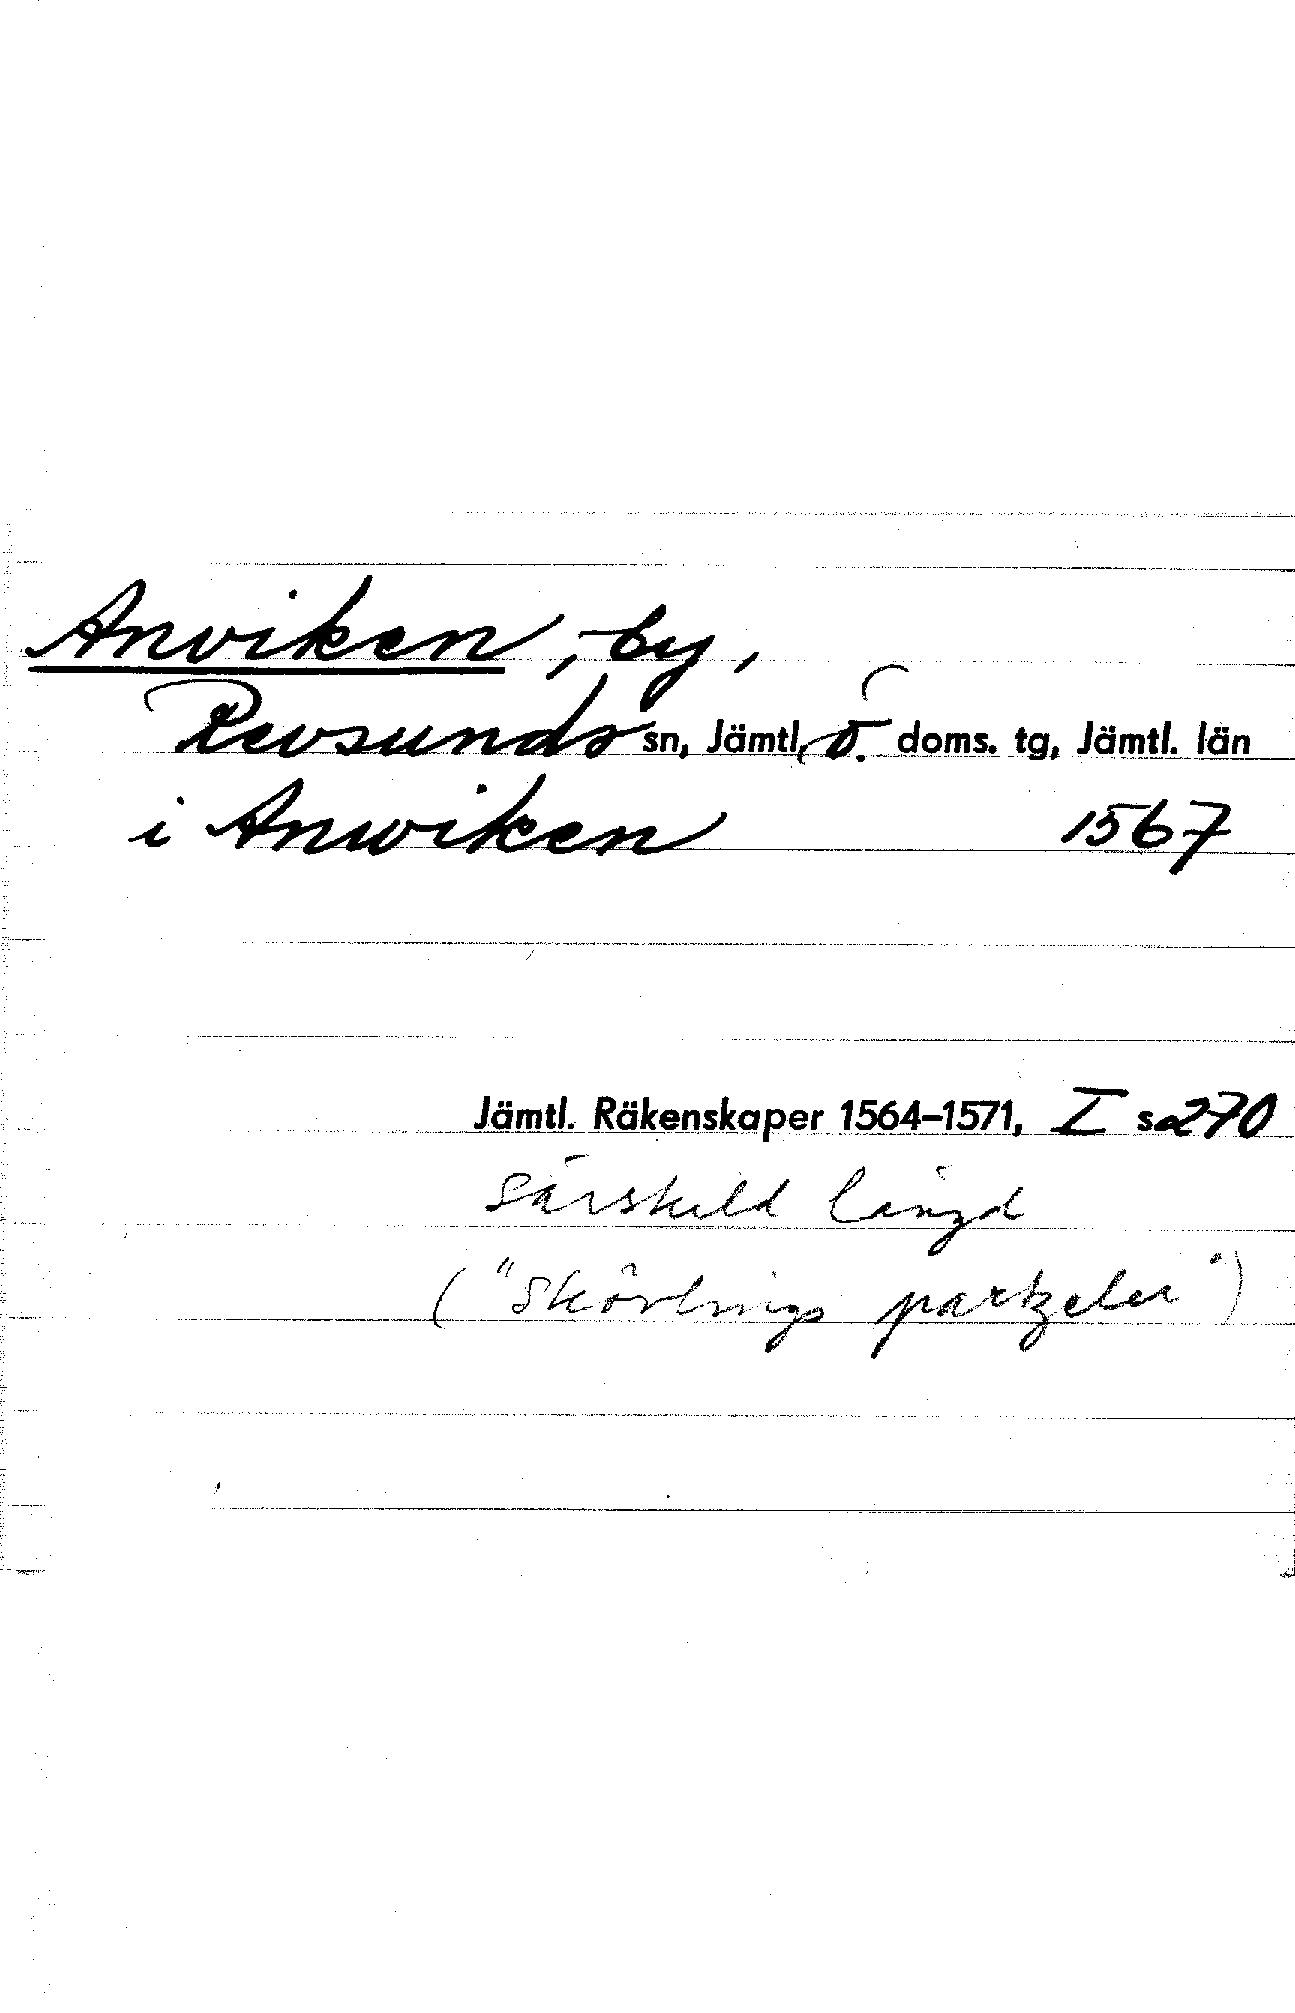 Anviken, by,
Revsunds sn, Jämtl, ö. doms. tg, Jämtl. län
i Anwiken 1567
Jämtl. Räkenskaper 1564–1571, I s. 270
Särskild längd
("Skövlings partzeler")